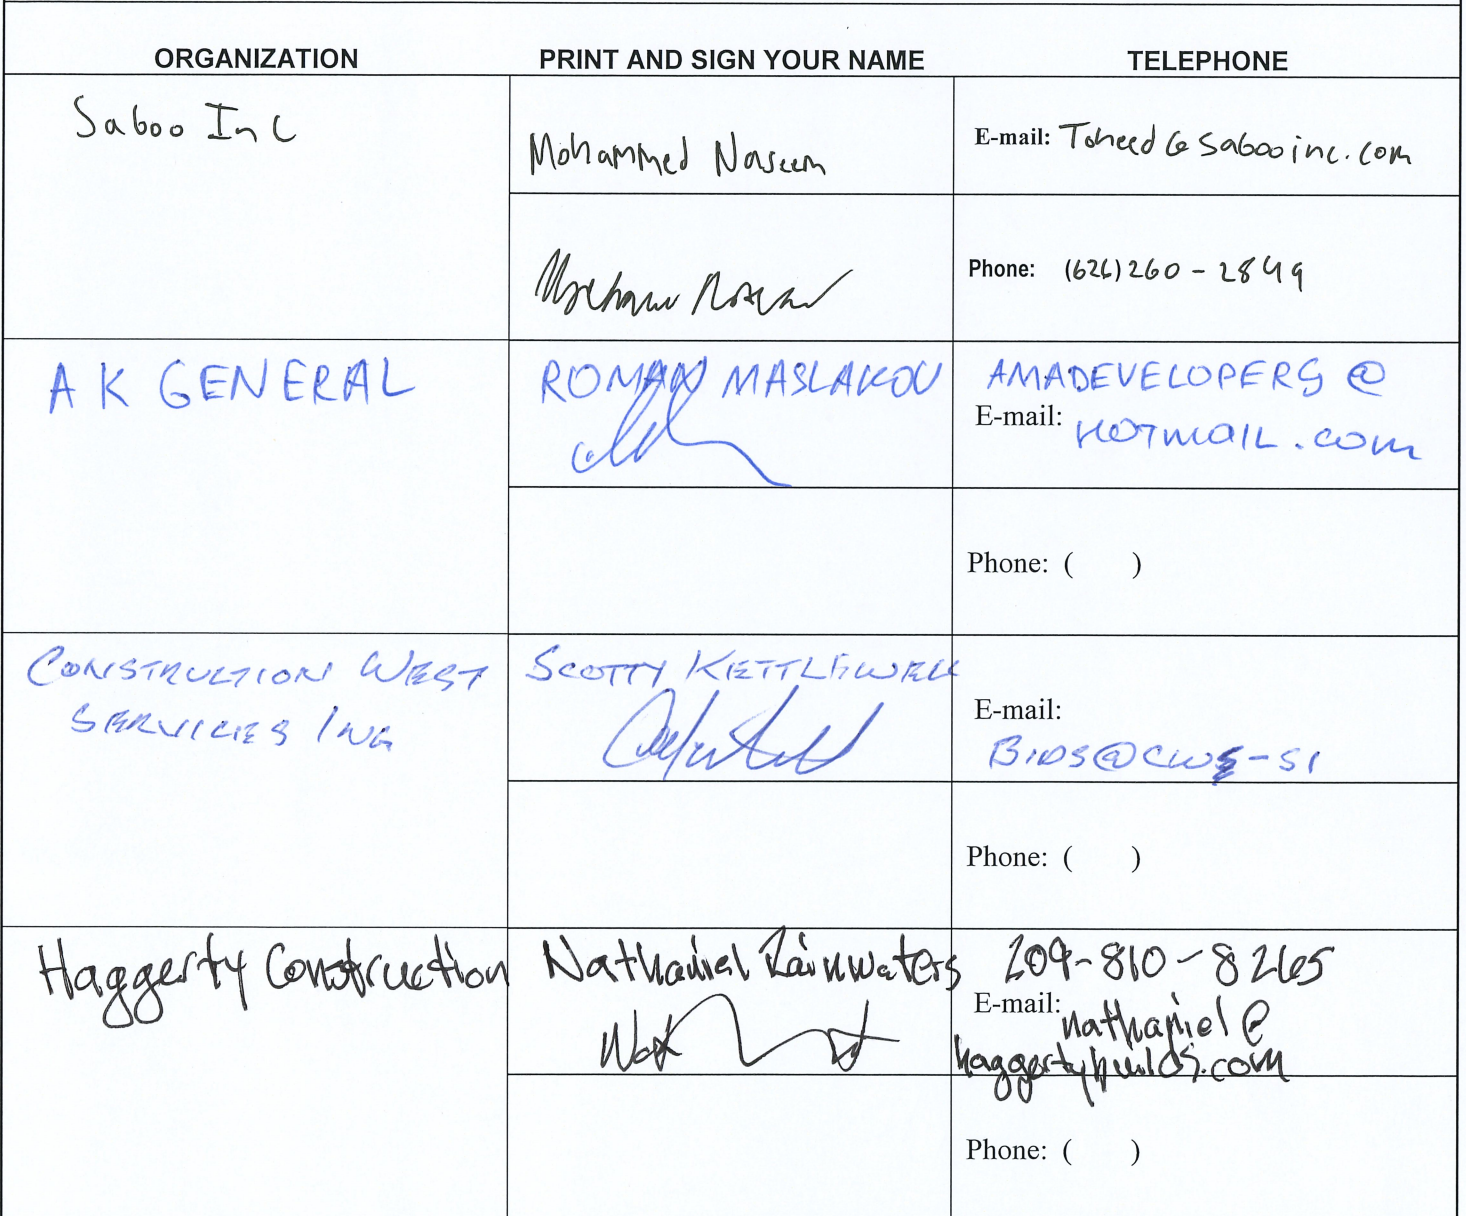 ORGANIZATION PRINT AND SIGN YOUR NAME TELEPHONE
Saboo Inc
Mohammed Naseem
E-mail: Toheed@sabooinc.com
Phone: (626)260-2849
A K GENERAL
ROMAN MASLAKOV
AMADEVELOPERS@
E-mail: HOTMAIL.COM
Phone: ( )
CONSTRUCTION WEST
SERVICES INC
SCOTTY KETTLEWELL
E-mail:
BIDS@CWS-SI
Phone: ( )
Haggerty Construction
Nathaniel Rainwaters
209-810-8265
E-mail: nathaniel@
haggertybuilds.com
Phone: ( )